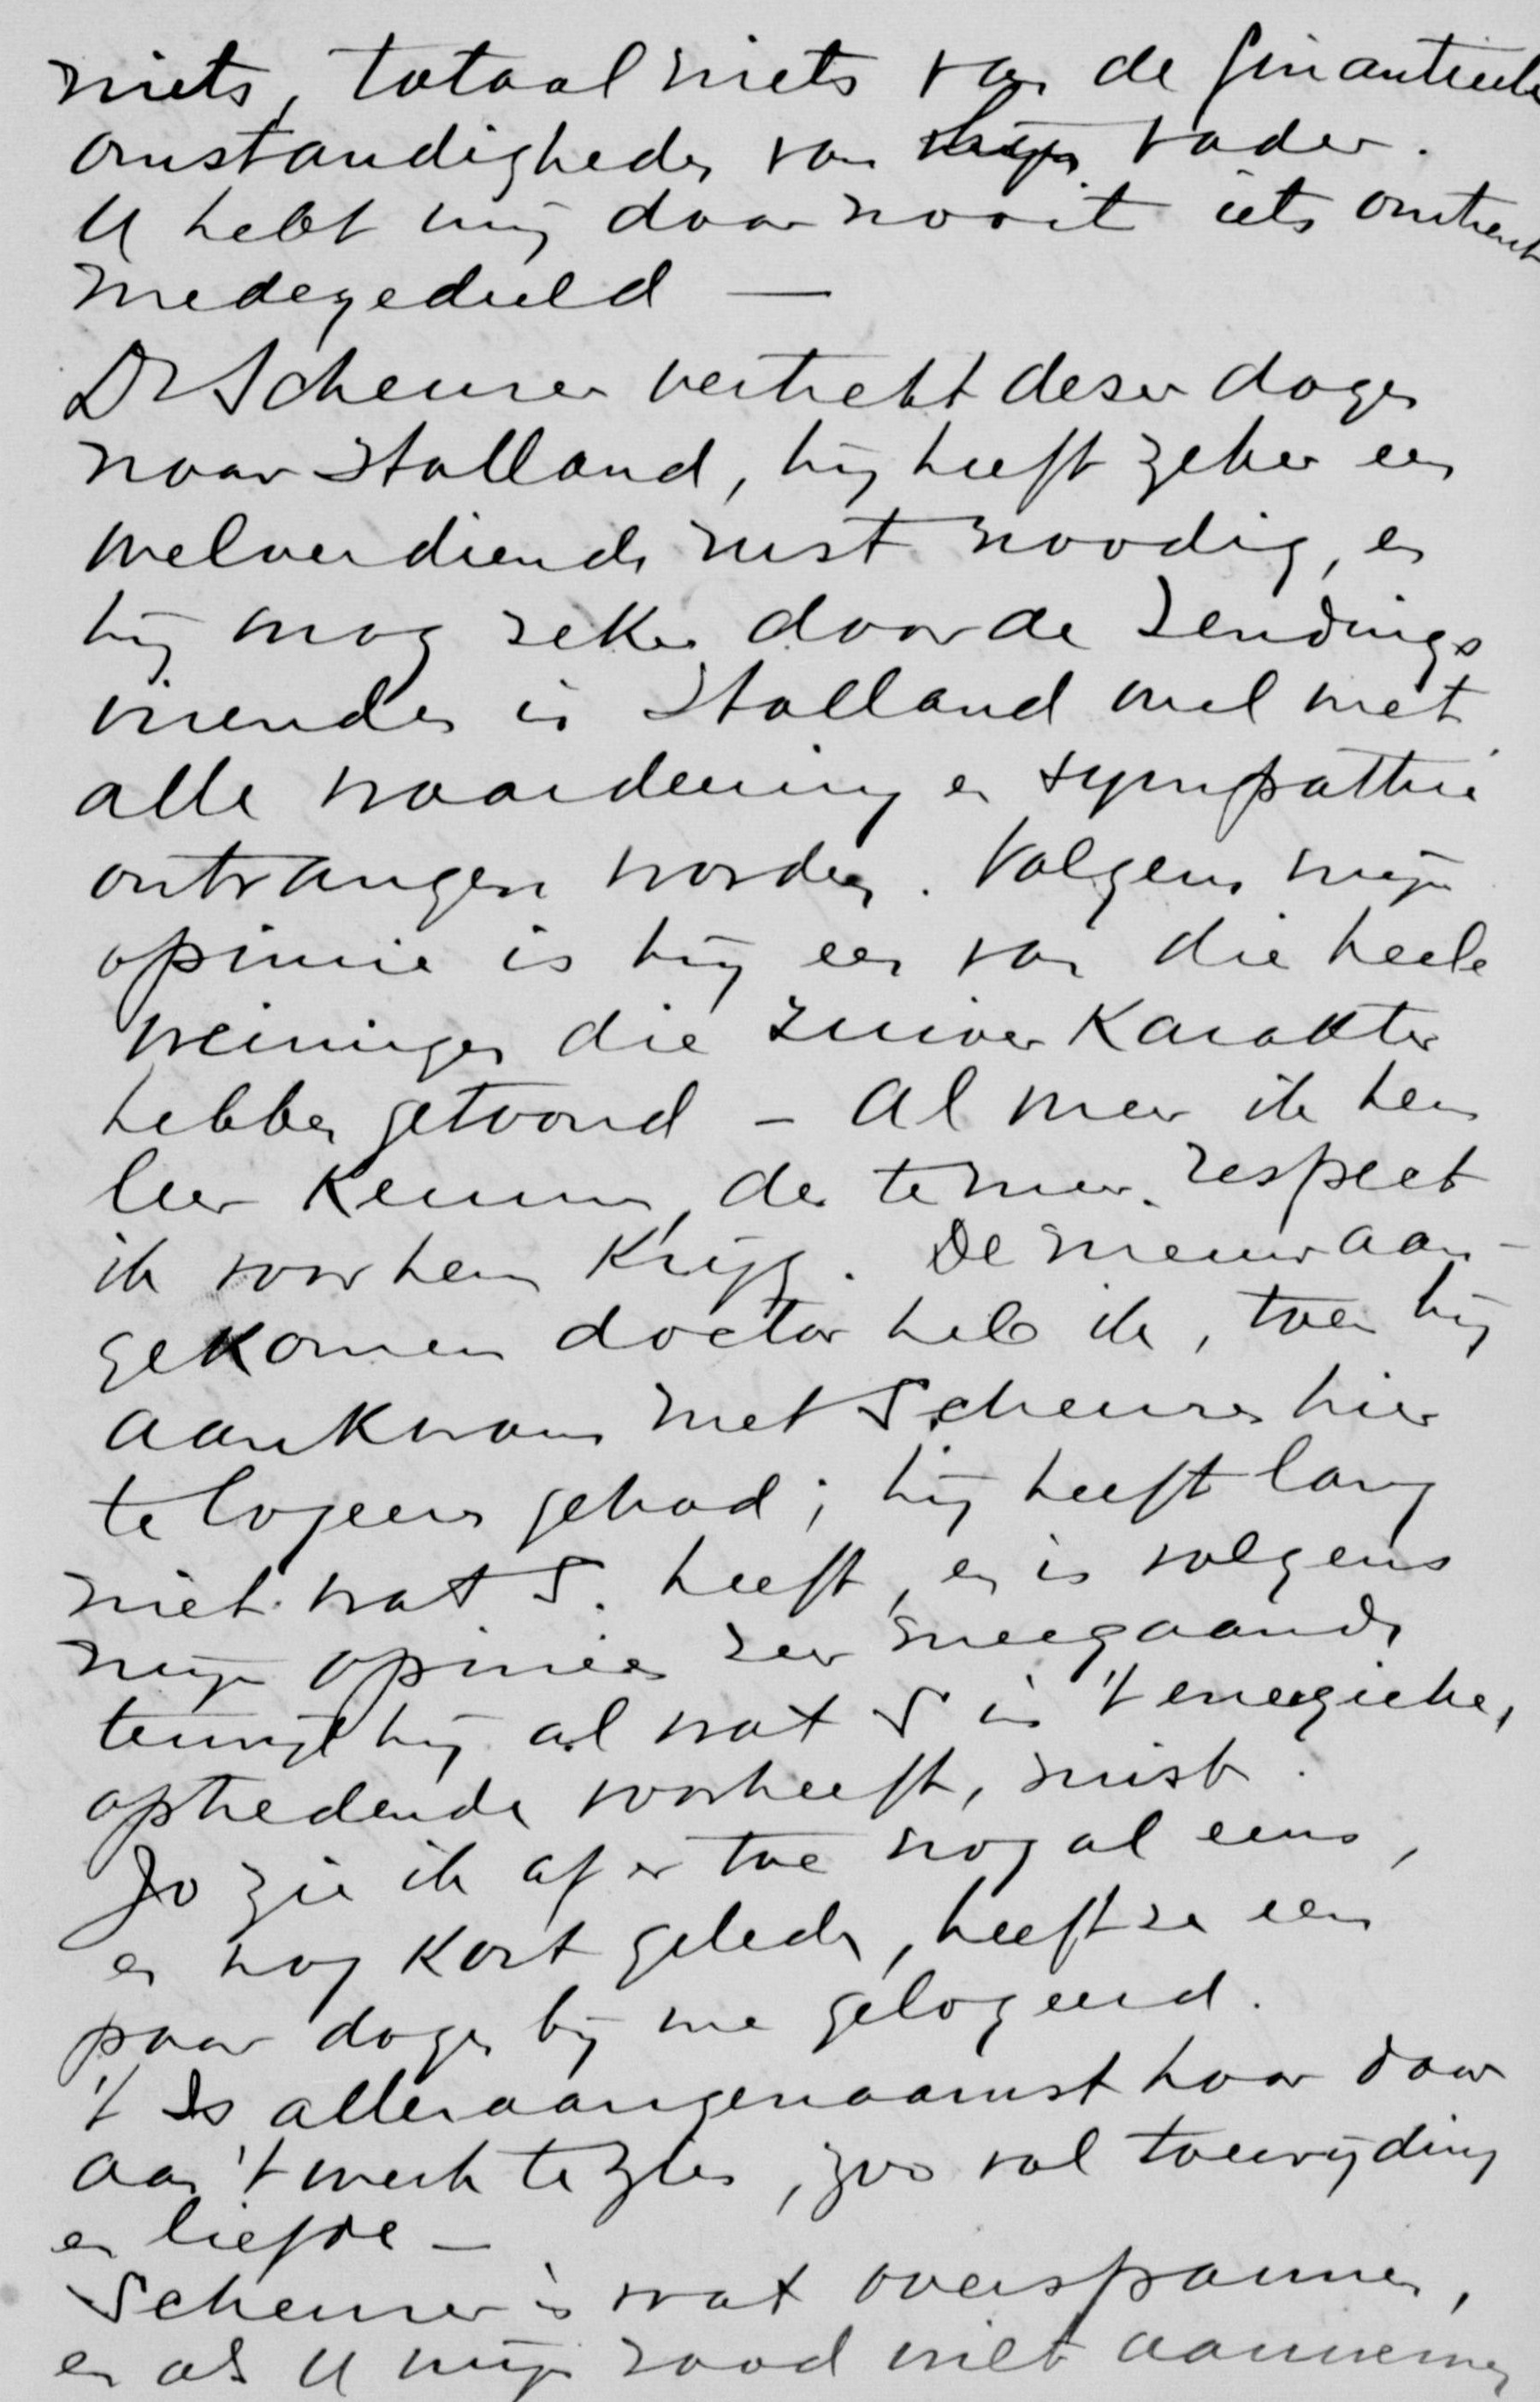 niets, totaal niets van de finantieele
omstandigheden van mijn vader.
U hebt mij daar nooit iets omtrent
medegedeeld —
Dr Scheurer vertrekt dezer dagen
naar Holland, hij heeft zeker een
welverdiende rust noodig, en
hij mag zeker door de Zendings
vrienden in Holland wel met
alle waardeering en sympathie
ontvangen worden. Volgens mijn
opinie is hij een van die heele
weinigen die zuiver Karakter
hebben getoond – Al meer ik hem
leer Kennen, des te meer respect
ik voor hem Krijg. De nieuw aan-
gekomen doctor heb ik, toen hij
aankwam met Scheurer hier
te logeeren gehad; hij heeft lang
niet wat S. heeft, en is volgens
mijn opinie zeer meegaande
terwijl hij al wat S in 't energieke,
optredende voorheeft, mist.
Jo zie ik af en toe nog al eens,
en nog Kort geleden, heeft ze een
paar dagen bij me gelogeerd.
't Is alleraangenaamst haar daar
aan 't werk te zien, zoo vol toewijding
en liefde —
Scheurer is wat overspannen,
en als U mijn raad wilt aannemen